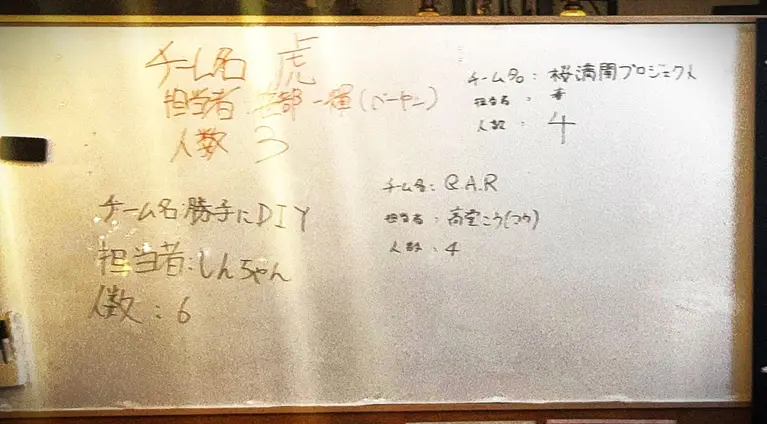 チーム名 虎
担当者: 部一輝(べーやん)
人数 3
チーム名: 桜満開プロジェクト
担当者:
人数: 4
チーム名:勝手にDIY
担当者:しんちゃん
人数:6
チーム名: Q.A.R
担当者: 高堂こう(つう)
人数: 4